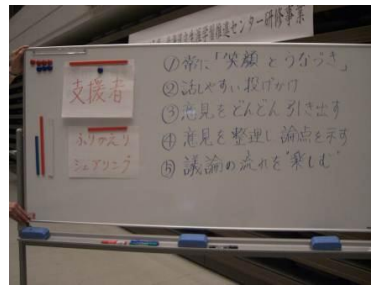 生涯学習推進センター研修事業
支援者
ふりかえり
シェアリング
①常に「笑顔とうなづき」
②話しやすい投げかけ
③意見をどんどん引き出す
④意見を整理し論点を示す
⑤議論の流れを"楽しむ"